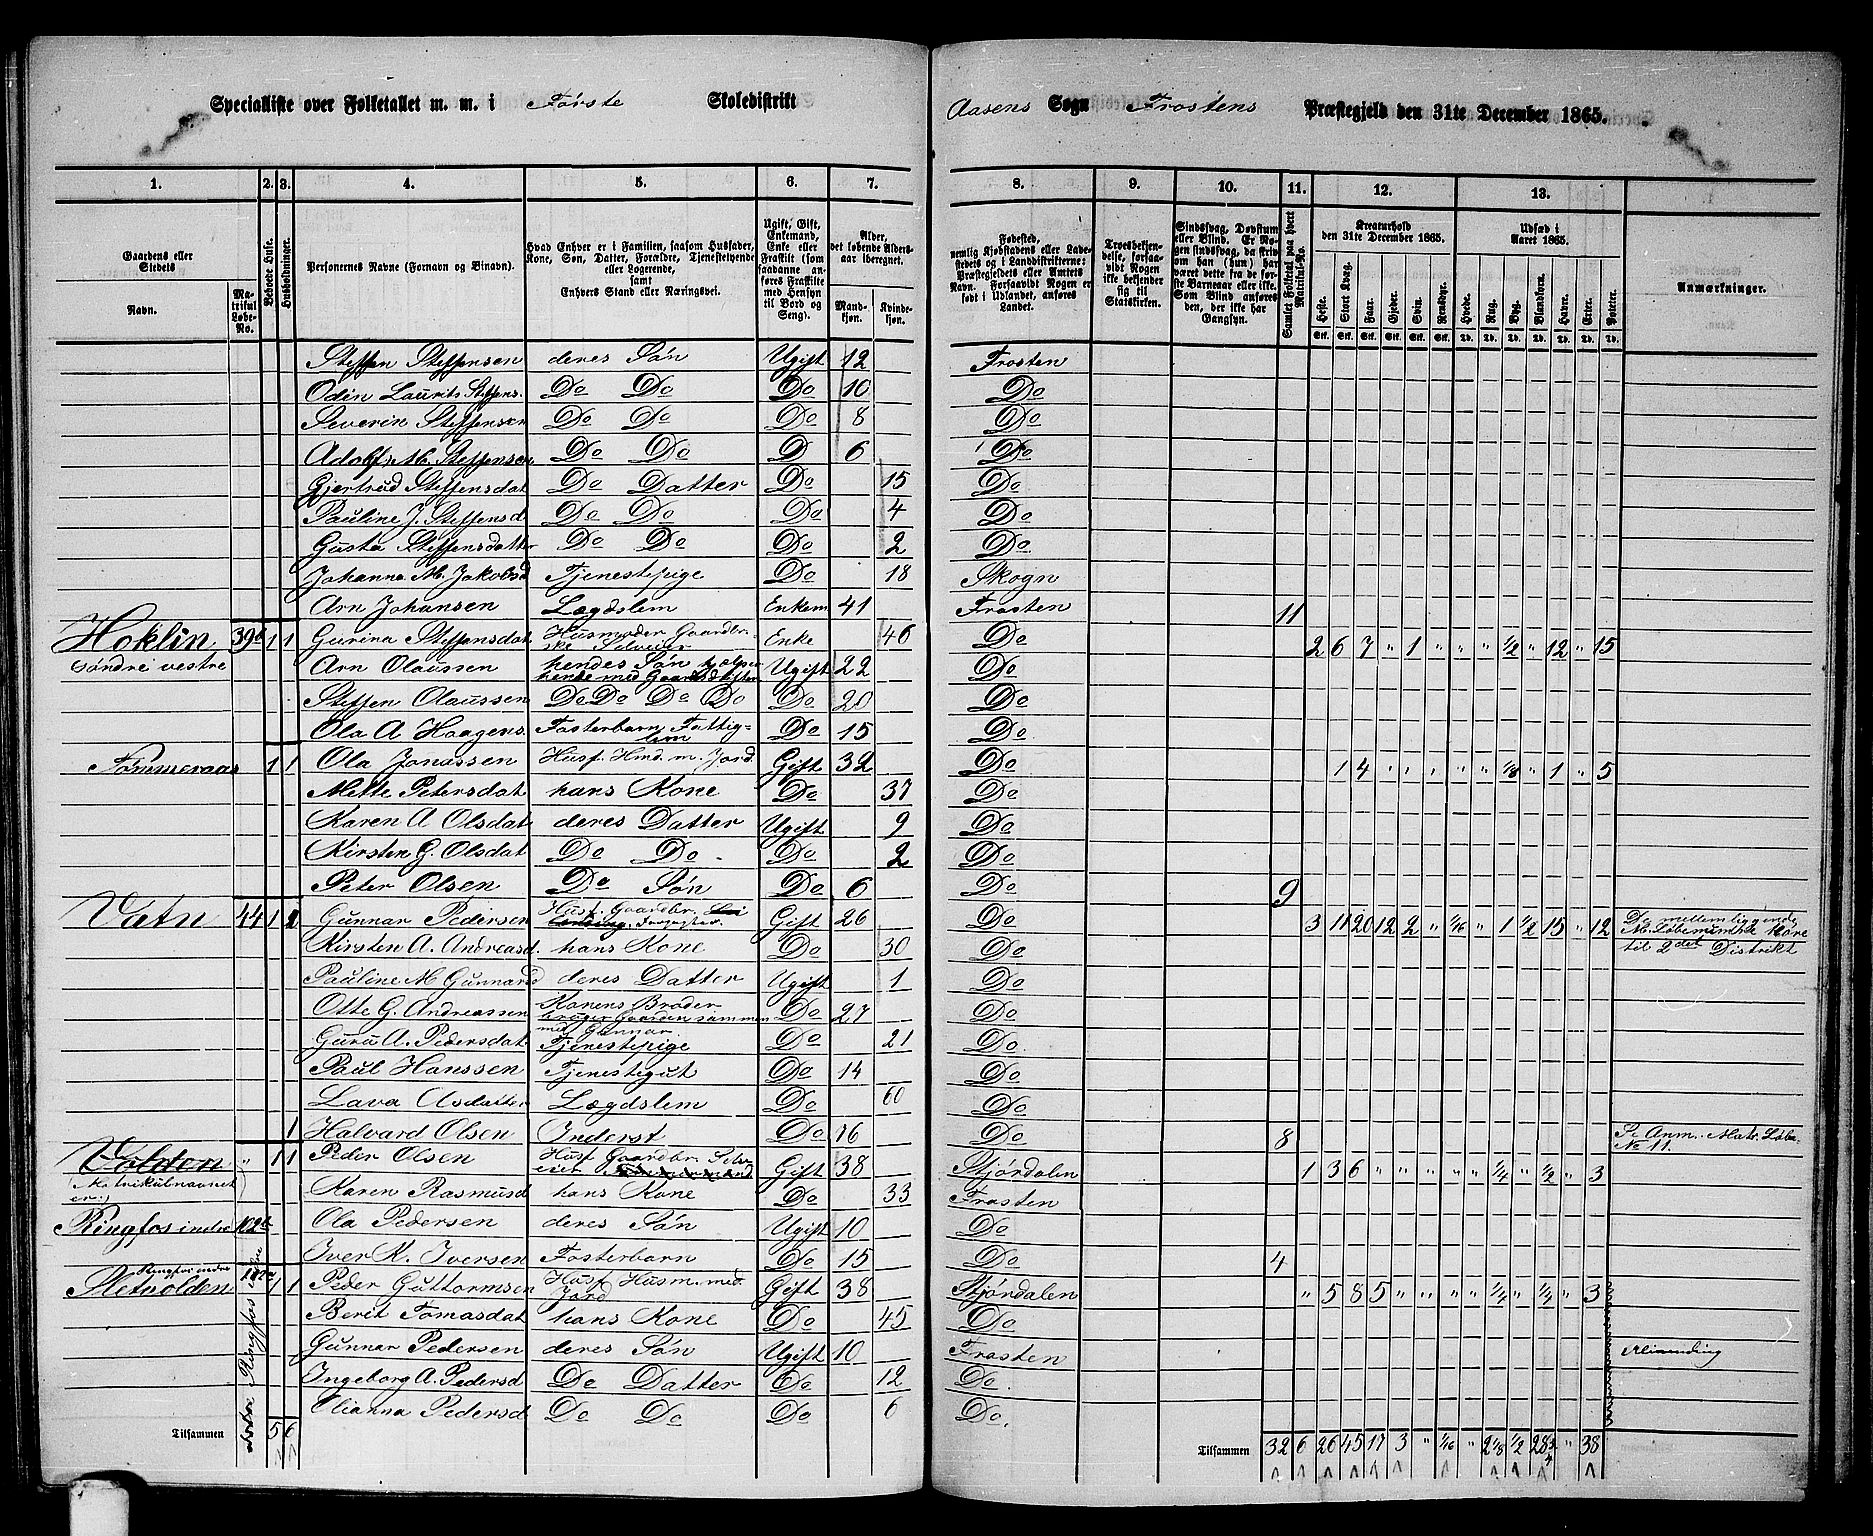 Specialliste over Folketallet m. m. i Første Skoledistrikt
Aasens Sogn Frostens Præstegjeld den 31te December 1865.
1. 2. 3. 4. 5. 6. 7.
8. 9. 10. 11. 12. 13.
Gaardens eller Stedets Navn. Matrikul Løbe-No. Beboede Huse. Husholdninger. Personernes Navne (Fornavn og Binavn).
Hvad Enhver er i Familien, saasom Husfader, Kone, Søn, Datter, Forældre, Tjenestetyende eller Logerende, samt Enhvers Stand eller Næringsvei.
Ugift, Gift, Enkemand, Enke eller Fraskilt (som saadanne anføres Fraskilte med Hensyn til Bord og Seng).
Alder, det løbende Aldersaar iberegnet. Mandkjøn. Kvindekjøn.
Fødested, nemlig Kjøbstadens eller Ladestedets og i Landdistrikterne: Præstegjeldets eller Amtets Navn. Forsaavidt Nogen er født i Udlandet, anføres Landet.
Troesbekjendelse, forsaavidt Nogen ikke bekjender sig til Statskirken.
Sindssvag, Døvstum eller Blind. Er Nogen sindssvag, da skrives om han (hun) har været dette fra de første Barneaar eller ikke. Som Blind anføres den, der ikke har Gangsyn.
Samlet Folketal paa hvert Matrikul-No.
Kreaturhold den 31te December 1865. Heste. Stort Kvæg. Faar. Gjeder. Svin. Rensdyr.
Udsæd i Aaret 1865. Hvede. Rug. Byg. Blandkorn. Havre. Erter. Poteter.
Anmærkninger.
Steffen Steffensen deres Søn Ugift 12 Frosten
Odin Laurits Steffens. Do Do Do 10 Do
Severin Steffensen Do Do Do 8 Do
Adolf M. Steffensen Do Do D 6 Do
Gjertrud Steffensdat Do Datter Do 15 Do
Pauline J. Steffensd Do Do Do 4 Do
Gusta Steffensdatter Do Do Do 2 Do
Johanna M. Jakobsd Tjenestepige Do 18 Skogn
Arn Johansen Lægdslem Enkem 41 Frosten 11
Hoklin 39b 1 1 Gurina Steffensdat Husmoder Gaardbrske Selveier Enke 46 Do 2 6 7 " 1 " " " 1/2 " 12 " 15
søndre vestre Arn Olaussen hendes Søn hjælper hende med Gaardsdriften Ugift 22 Do
Steffen Olaussen Do Do Do Do Do 20 Do
Ola A Haagens. Fosterbarn Fattiglem Do 15 Do
Tømmeraas 1 1 Ola Jonassen Husf. Hmd. m. Jord Gift 32 Do 1 4 " " " " " 1/8 " 1 " 5
Mette Petersdat hans Kone Do 37 Do
Karen A Olsdat deres Datter Ugift 9 Do
Kirsten G. Olsdat Do Do Do 2 Do
Peter Olsen Do Søn Do 6 Do 9
Vatn 44 1 2 Gunnar Pedersen Husf. Gaardbr. Forpagter. Gift 26 Do 3 11 20 12 2 " 1/16 " 1 1/2 15 " 12 De mellemliggende M. Løbenumre høre til 2det Distrikt
Kirsten A. Andreasd. hans Kone Do 30 Do
Pauline M Gunnarsd deres Datter Ugift 1 Do
Otte G. Andreassen Konens Broder bruger Gaarden sammen med Gunnar. Do 27 Do
Gura A. Pedersdat Tjenestepige Do 21 Do
Paul Hanssen Tjenestegut Do 14 Do
Lava Asdatter Lægdslem Do 60 Do
1 Halvard Olsen Inderst Do 76 Do 8
Volden " 1 1 Peder Olsen Husf Gaardbr. Selveier Gift 38 Stjørdalen 1 3 6 " " " " " 1/4 " 1/2 " 3 Matr. Løbe No 11.
(Matrikulnavnet er:) Karen Rasmusd hans Kone Do 33 Frosten
Ringfos indre 102b Ola Pedersen deres Søn Ugift 10 Do
Iver K. Iversen Fosterbarn Do 15 Do 4
Ringfos indre 102a 1 1 Peder Guttormsen Husf Husm. med Jord Gift 38 Stjørdalen " 5 8 5 " " " " 1/4 " 1/4 " 3
Beret Tomasdat hans Kone Do 45 Do
Gunnar Pedersen deres Søn Ugift 10 Frosten Alminding
Ingeborg A. Pedersd Do Datter Do 12 Do
Olianna Pedersd Do Do Do 6 Do.
Tilsammen 5 6
Tilsammen 32 6 26 45 17 3 " 1/16 " 2 1/8 1/2 28 3/4 " 38